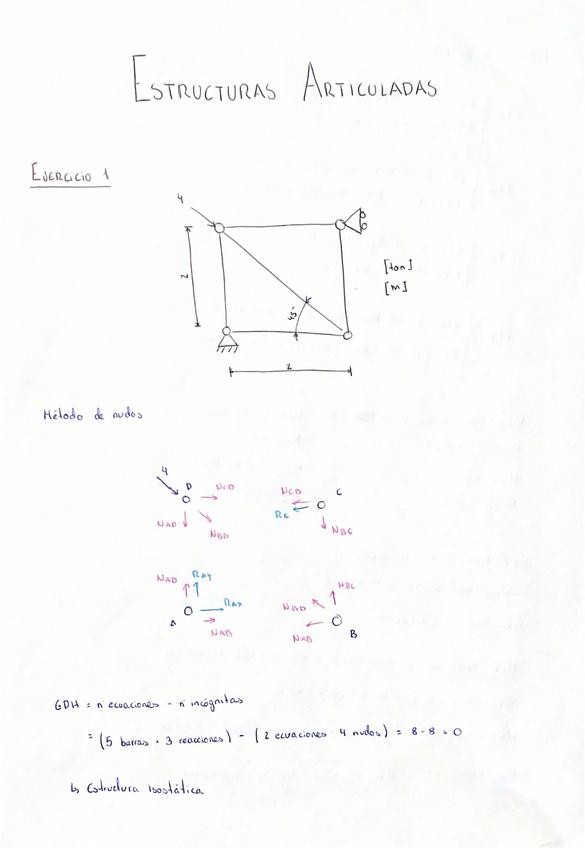 ESTRUCTURAS ARTICULADAS
EJERCICIO 1
4
2
45°
[ton]
[m]
2
Método de nudos
4
D
NCD
NAD
NBD
NCD
C
RC
NBC
NAD RAY
RAX
A
NAB
NBC
NBD
NAB
B
GDH = n ecuaciones - nº incógnitas
= (5 barras + 3 reacciones) - (2 ecuaciones · 4 nudos) = 8 - 8 = 0
↳ Estructura isostática